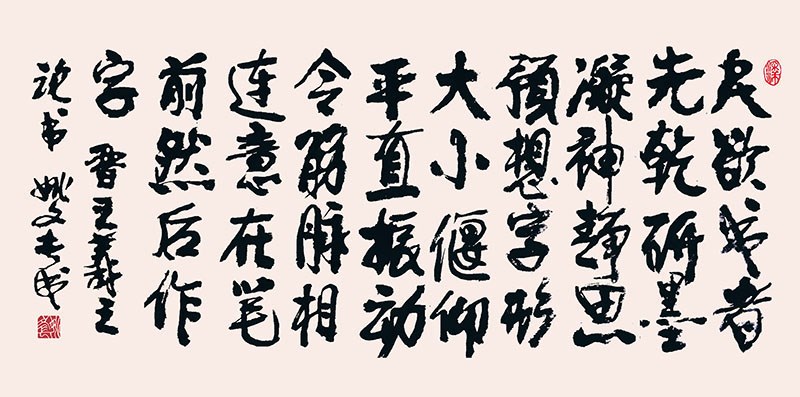 夫欲书者
先乾研墨
凝神静思
預想字形
大小偃仰
平直振动
令筋脉相
连意在笔
前然后作
字 晋王羲之
论书 姚文书